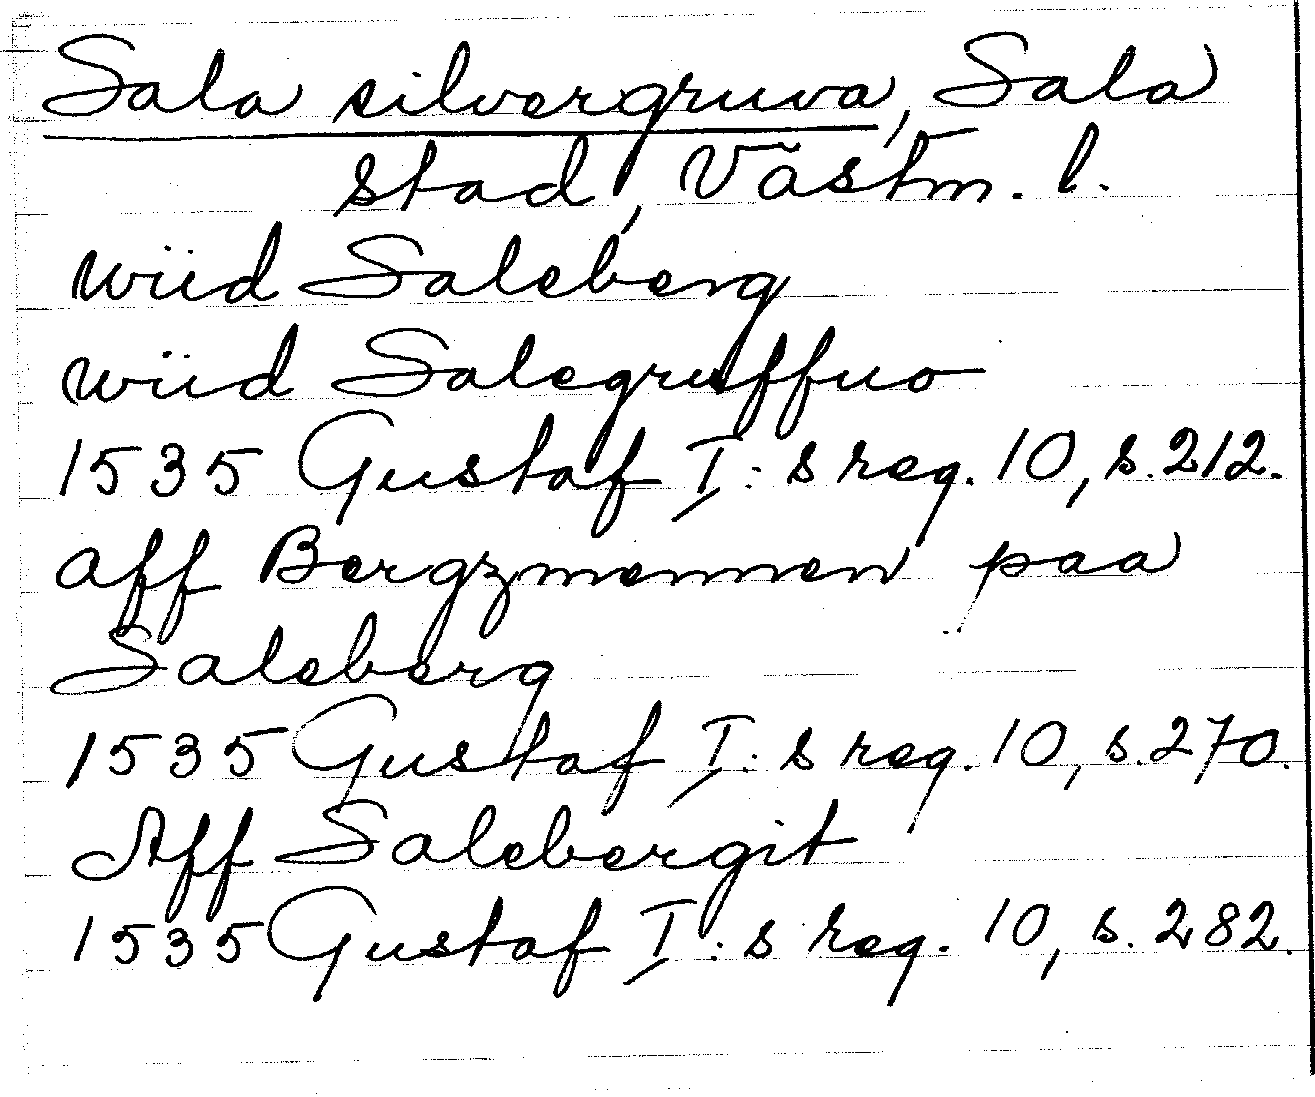 Sala silvergruva, Sala
stad, Västm. l.
wiid Saleberg
wiid Salegruffuo
1535 Gustaf I:s reg. 10, s. 212.
aff Bergzmennen paa
Saleberg
1535 Gustaf I:s reg. 10, s. 270.
Aff Salebergit
1535 Gustaf I:s reg. 10, s. 282.